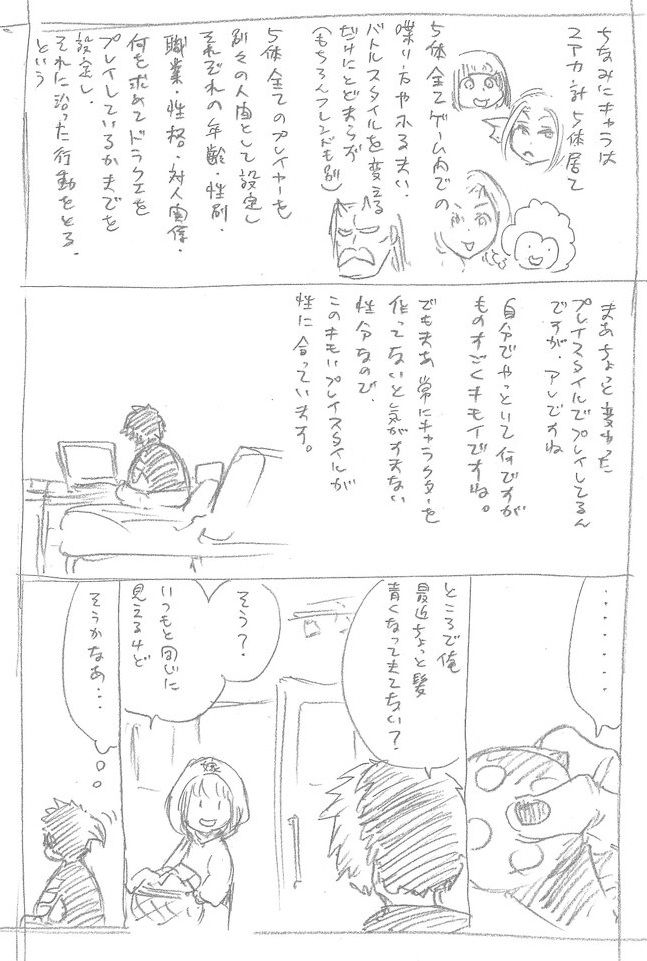 ちなみにキャラは
2アカ・計5体居て
5体全てゲーム内での
喋り方やふるまい、
バトルスタイルを変える
だけにとどまらず
(もちろんフレンドも別)
5体全てのプレイヤーを
別々の人間として設定し
それぞれの年齢・性別・
職業・性格・対人関係・
何を求めてドラクエを
プレイしているかまでを
設定し、
それに沿った行動をとる、
という
まあちょっと変わった
プレイスタイルでプレイしてるん
ですが、アレですね
自分でやっといて何ですが
ものすごくキモイですね。
でもまあ常にキャラクターを
作ってないと気がすまない
性分なので、
このキモいプレイスタイルが
性に合っています。
・・・・・・
ところで俺
最近ちょっと髪
青くなってきてない?
そう?
いつもと同じに
見えるけど
嫁
そうかなあ・・・